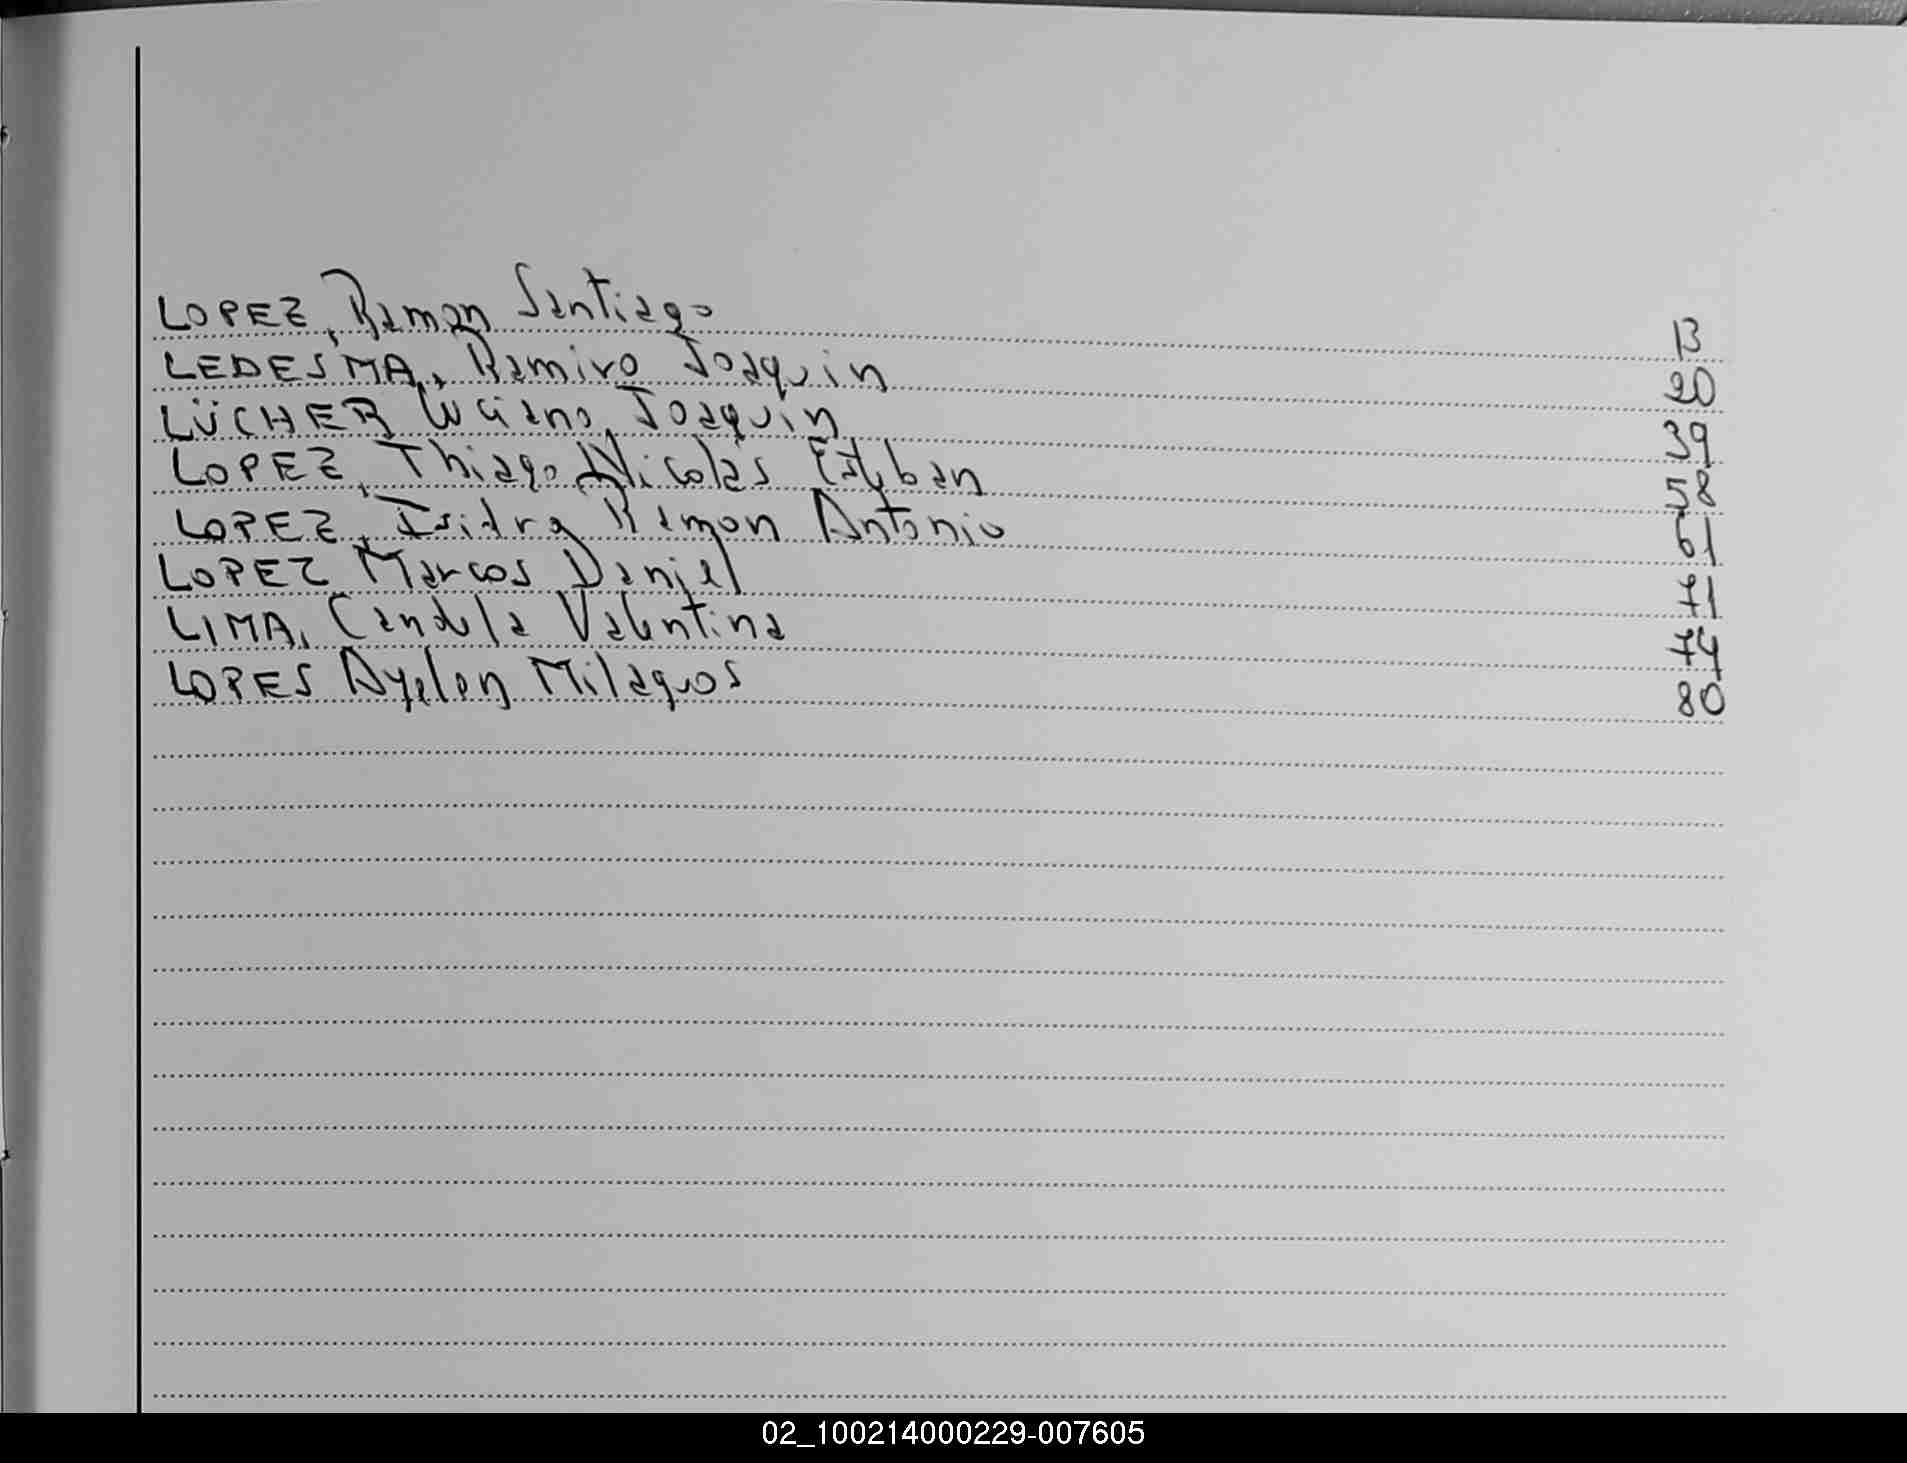 LOPEZ, Ramon Santiago 13
LEDESMA, Ramiro Joaquin 20
LÜCHER Luciano Joaquin 39
LOPEZ, Thiago Nicolás Esteban 58
LOPEZ, Isidro Ramon Antonio 61
LOPEZ Marcos Daniel 71
LIMA, Candela Valentina 74
LOPES Ayelen Milagros 80
02_100214000229-007605